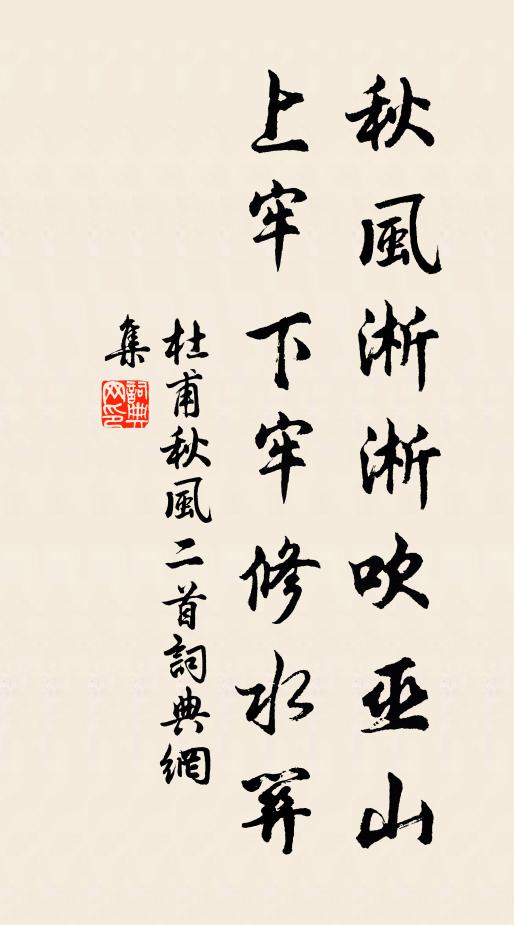 秋風淅淅吹巫山
上牢下牢修水關
杜甫秋風二首詞典網
集
詞典
网印